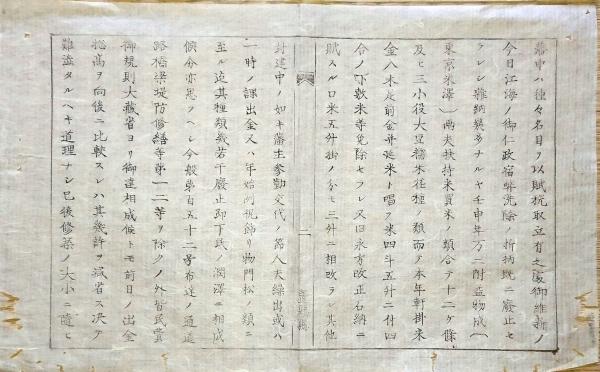 藩中ハ種々名目ヲ以賦税取立有之候處御維新ノ
今日江海ノ御仁政宿弊洗除ノ折柄既ニ廢止セ
ラレシ雑納幾多ナルヤ壬申年万ニ附益物成(
東京米澤)両夫扶持米買米ノ類合テ十二ヶ條
及ヒ三小役大豆糯米荏種ノ類而テ本年軒掛米
金八木走前金并延米ト唱フ米四斗五升ニ付四
合ノ下敷米等免除セラレ又旧永方改正石納ニ
賦スルロ米五升掛ノ分モ三升ニ相改ラレ其他
封建中ノ如キ藩主参勤交代ノ節人夫繰出或ハ
一時ノ課出金又ハ年始門祝飾リ物門松ノ類ニ
至ル迄其種類幾若干廢止即下民ノ潤澤ニ相成
候今亦思フヘシ今般第百五十二号布達ノ通道
路橋梁堤防修繕等第一二等ヲ除クノ外皆民費
御規則大藏省ヨリ御達相成候トモ前日ノ出金
惣高ヲ向後ニ比較スレハ其幾許ヲ減省ス决テ
難澁タルヘキ道理ナシ已後修築ノ大小ニ随ヒ
二